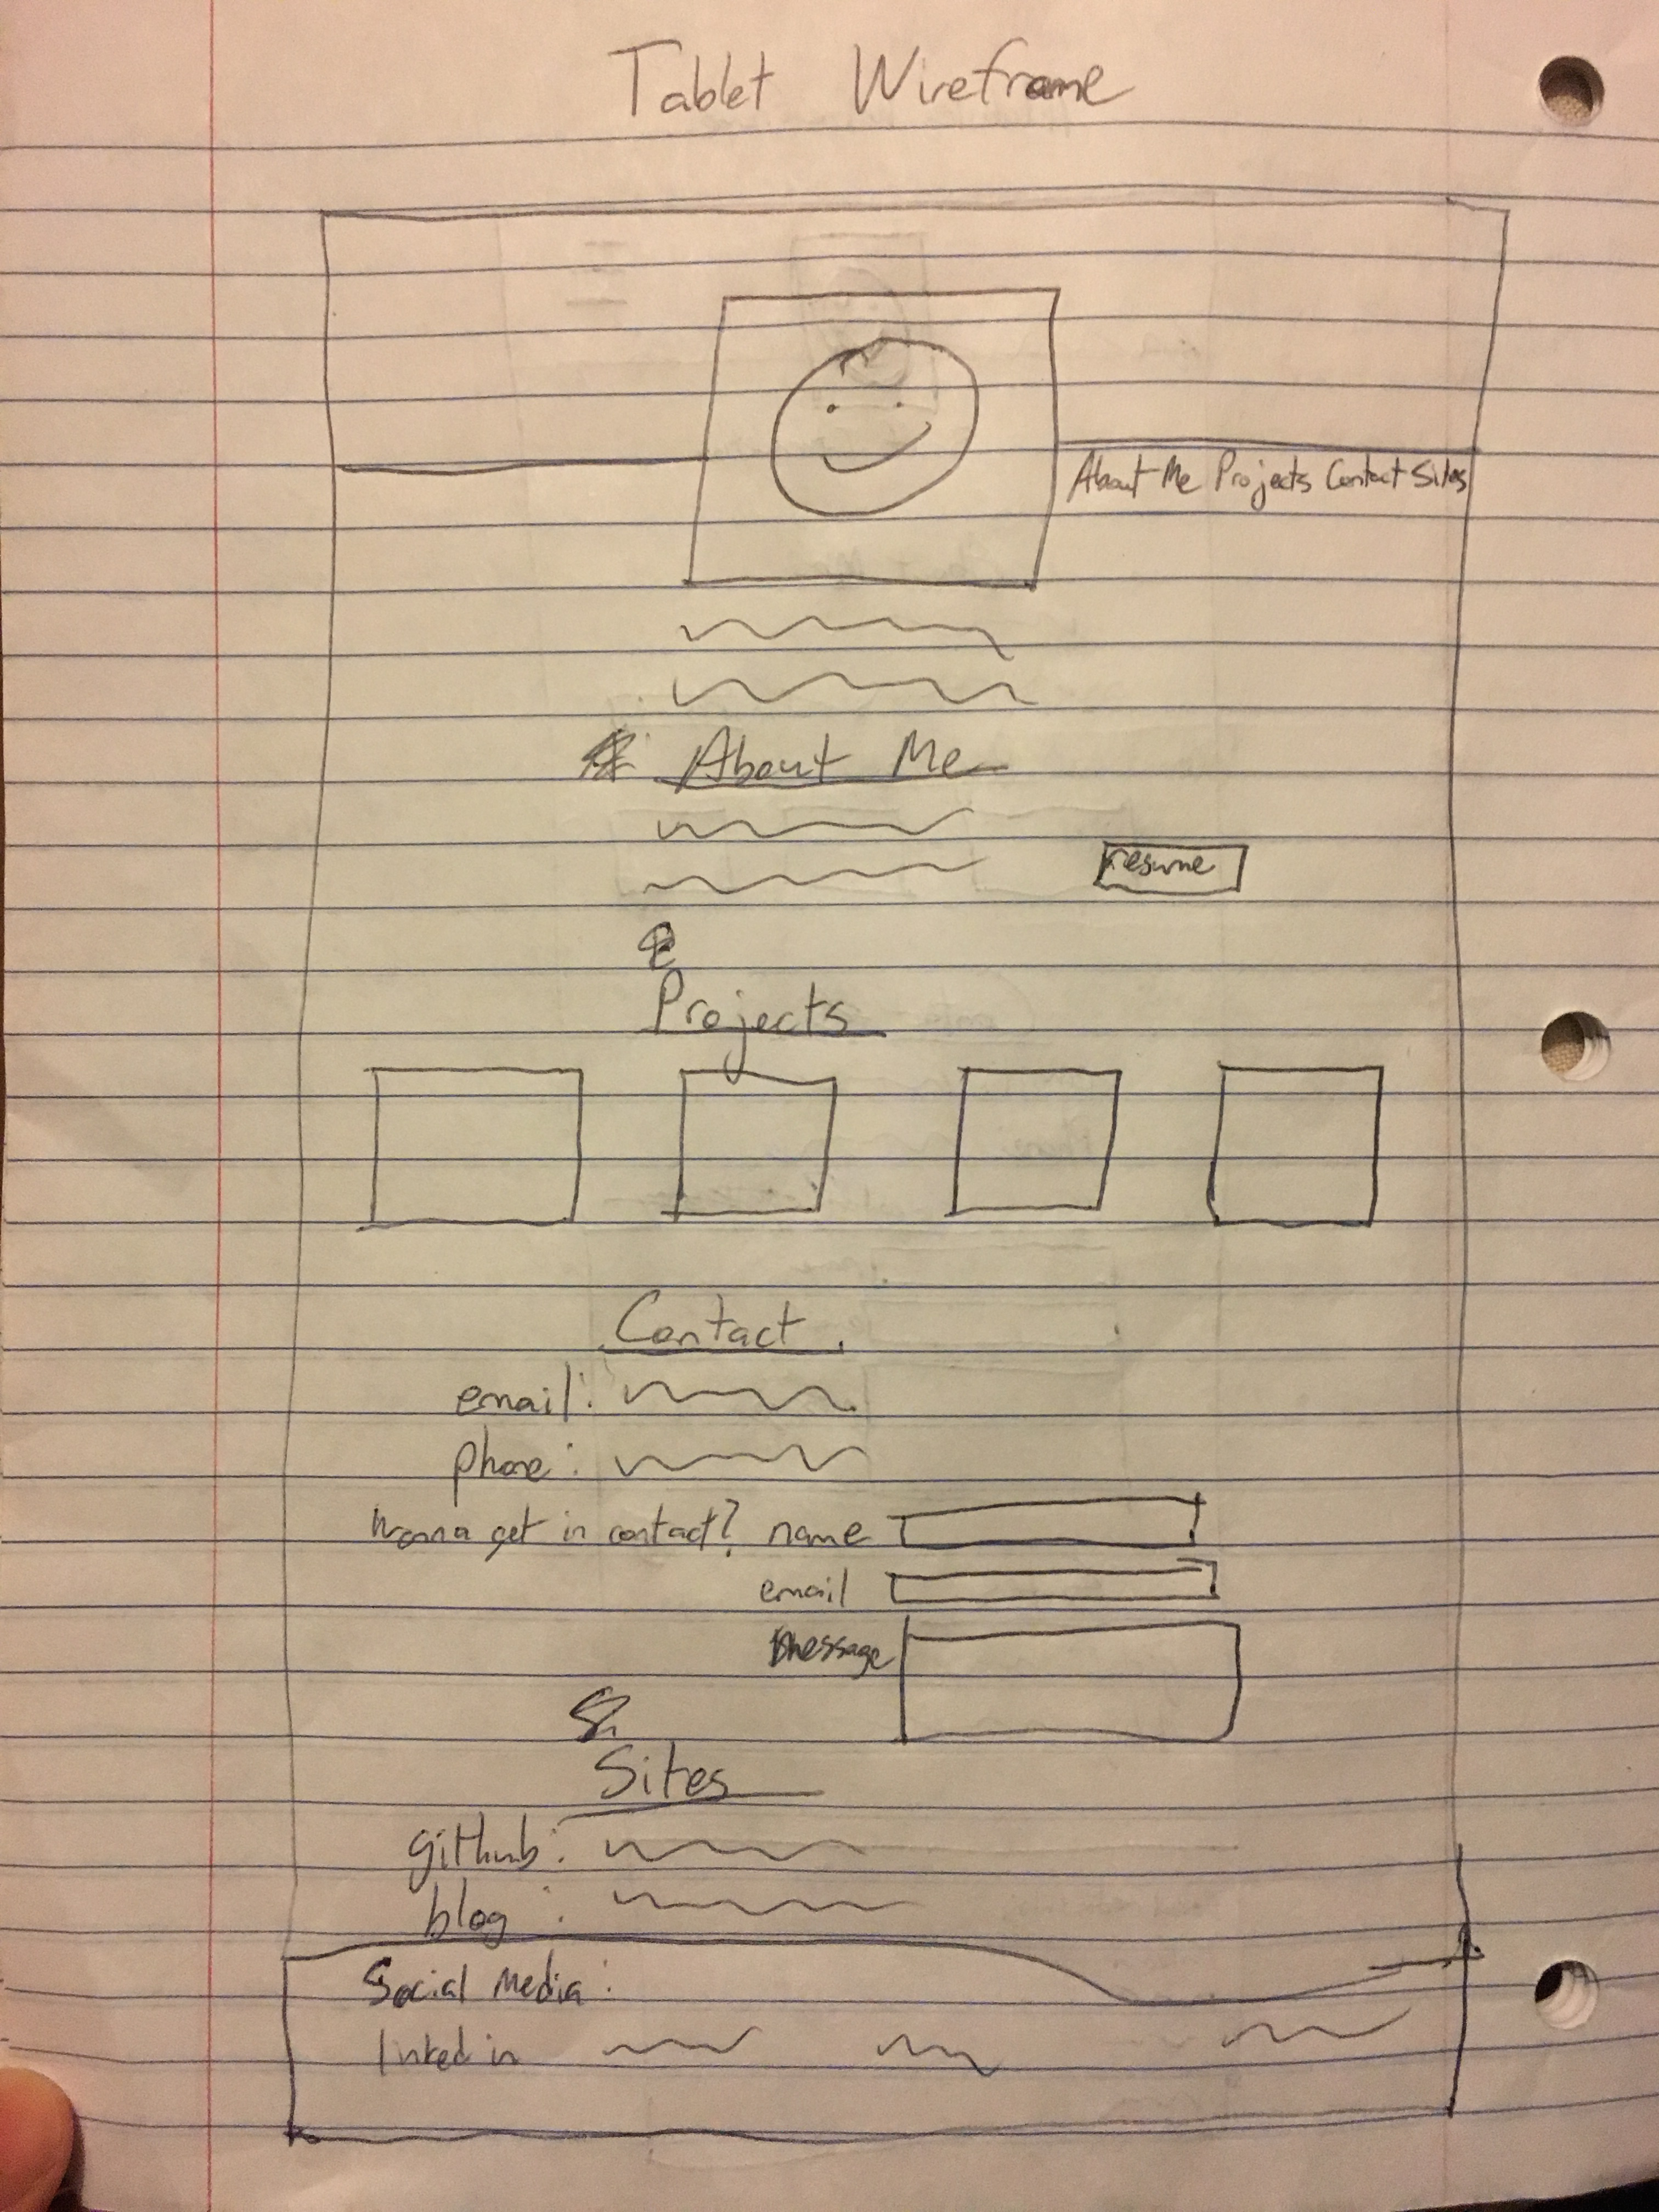 Tablet Wireframe
About Me Projects Contact Sites
About Me
resume
Projects
Contact
email:
phone:
Wanna get in contact? name
email
message
Sites
github:
blog :
Social Media:
linked in